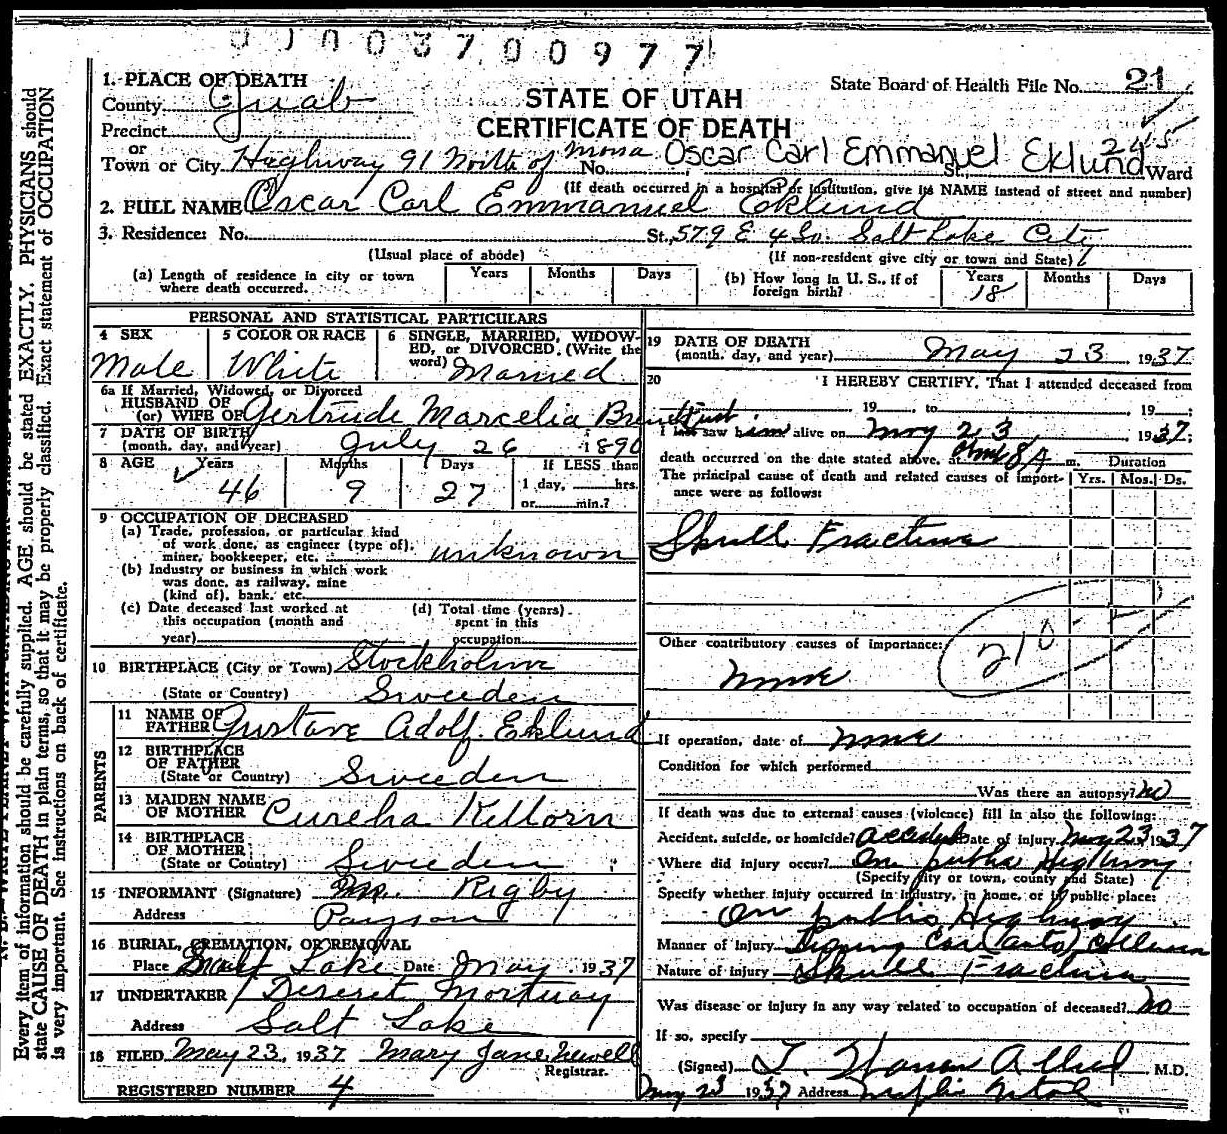 00003700977
1. PLACE OF DEATH
County Juab
Precinct
or
Town or City Haghway 91 North of Mona No. St., Ward
STATE OF UTAH
CERTIFICATE OF DEATH
State Board of Health File No. 21
245
Oscar Carl Emmanuel Eklund
(If death occurred in a hospital or institution, give its NAME instead of street and number)
2. FULL NAME Oscar Carl Emmanuel Eklund
3. Residence: No. St., 579 E 4 So. Salt Lake City
(Usual place of abode) (If non-resident give city or town and State)
(a) Length of residence in city or town where death occurred. Years Months Days
(b) How long in U. S., if of foreign birth? Years 18 Months Days
PERSONAL AND STATISTICAL PARTICULARS
4 SEX Male
5 COLOR OR RACE White
6 SINGLE, MARRIED, WIDOWED, or DIVORCED. (Write the word) Married
6a If Married, Widowed, or Divorced
HUSBAND OF
(or) WIFE OF Gertrude Marcelia
7 DATE OF BIRTH
(month, day, and year) July 26 1890
8 AGE Years 46 Months 9 Days 27
If LESS than
1 day, hrs.
or min.?
9 OCCUPATION OF DECEASED
(a) Trade, profession, or particular kind
of work done, as engineer (type of),
miner, bookkeeper, etc. unknown
(b) Industry or business in which work
was done, as railway, mine
(kind of), bank, etc.
(c) Date deceased last worked at
this occupation (month and
year)
(d) Total time (years)
spent in this
occupation
10 BIRTHPLACE (City or Town) Stockholm
(State or Country) Sweeden
PARENTS
11 NAME OF
FATHER Gustave Adolf Eklund
12 BIRTHPLACE
OF FATHER
(State or Country) Sweeden
13 MAIDEN NAME
OF MOTHER
14 BIRTHPLACE
OF MOTHER
(State or Country) Sweeden
15 INFORMANT (Signature) Rigby
Address Payson
16 BURIAL, CREMATION, OR REMOVAL
Place Salt Lake Date May 1937
17 UNDERTAKER Deseret Mortuay
Address Salt Lake
18 FILED May 23, 1937 Mary Jane Newell
Registrar.
REGISTERED NUMBER 4
19 DATE OF DEATH
(month, day, and year) May 23 1937
20 I HEREBY CERTIFY, That I attended deceased from
19 , to , 19 ;
I last saw him alive on May 23, 1937;
death occurred on the date stated above, at 8A m.
Duration
The principal cause of death and related causes of importance were as follows: Yrs. Mos. Ds.
Skull Fracture
Other contributory causes of importance:
210
None
If operation, date of None
Condition for which performed
Was there an autopsy? No
If death was due to external causes (violence) fill in also the following:
Accident, suicide, or homicide? Accident Date of injury May 23 1937
Where did injury occur? On public Highway
(Specify city or town, county and State)
Specify whether injury occurred in industry, in home, or in public place:
On public Highway
Manner of injury Car (auto) Collision
Nature of injury Skull Fracture
Was disease or injury in any way related to occupation of deceased? No
If so, specify
(Signed) M.D.
May 23 1937 Address Nephi Utah
Every item of information should be carefully supplied. AGE should be stated EXACTLY. PHYSICIANS should
state CAUSE OF DEATH in plain terms, so that it may be properly classified. Exact statement of OCCUPATION
is very important. See instructions on back of certificate.